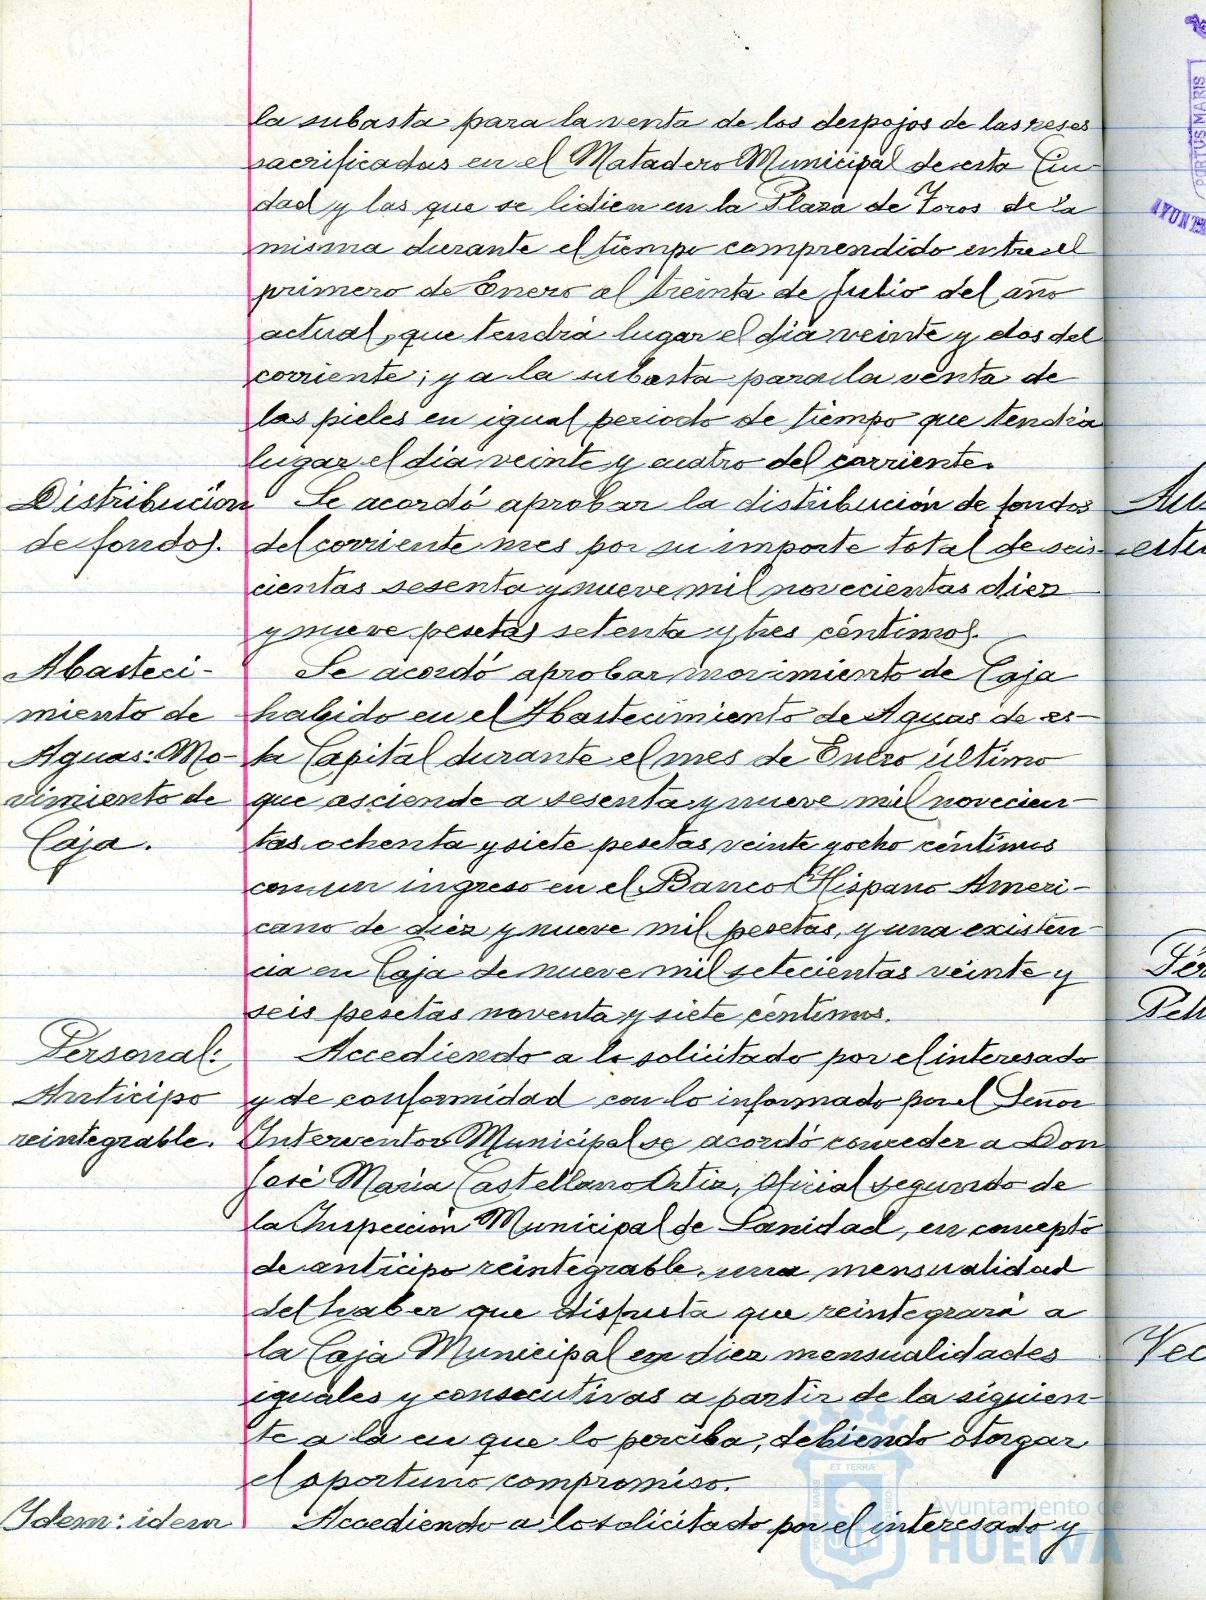 la subasta para la venta de los despojos de las reses
sacrificadas en el Matadero Municipal de esta Ciu-
dad y las que se lidien en la Plaza de Toros de la
misma durante el tiempo comprendido entre el
primero de Enero al treinta de Julio del año
actual, que tendrá lugar el día veinte y dos del
corriente; y a la subasta para la venta de
las pieles en igual periodo de tiempo que tendrá
lugar el día veinte y cuatro del corriente.
Distribución
de fondos.
Se acordó aprobar la distribución de fondos
del corriente mes por su importe total de seis-
cientas sesenta y nueve mil novecientas diez
y nueve pesetas setenta y tres céntimos.
Abasteci-
miento de
Aguas: Mo-
vimiento de
Caja.
Se acordó aprobar movimiento de Caja
habido en el Abastecimiento de Aguas de es-
ta Capital durante el mes de Enero último
que asciende a sesenta y nueve mil novecien-
tas ochenta y siete pesetas veinte y ocho céntimos
con un ingreso en el Banco Hispano Ameri-
cano de diez y nueve mil pesetas, y una existen-
cia en Caja de nueve mil setecientas veinte y
seis pesetas noventa y siete céntimos.
Personal:
Anticipo
reintegrable.
Accediendo a lo solicitado por el interesado
y de conformidad con lo informado por el Señor
Interventor Municipal se acordó conceder a Don
José María Castellano Ortiz, Oficial segundo de
la Inspección Municipal de Sanidad, en concepto
de anticipo reintegrable, una mensualidad
del haber que disfruta que reintegrará a
la Caja Municipal en diez mensualidades
iguales y consecutivas a partir de la siguien-
te a la en que lo perciba, debiendo otorgar
el oportuno compromiso.
Idem: idem
Accediendo a lo solicitado por el interesado y
Ayuntamiento de
HUELVA
PORTUS MARIS
ET TERRÆ